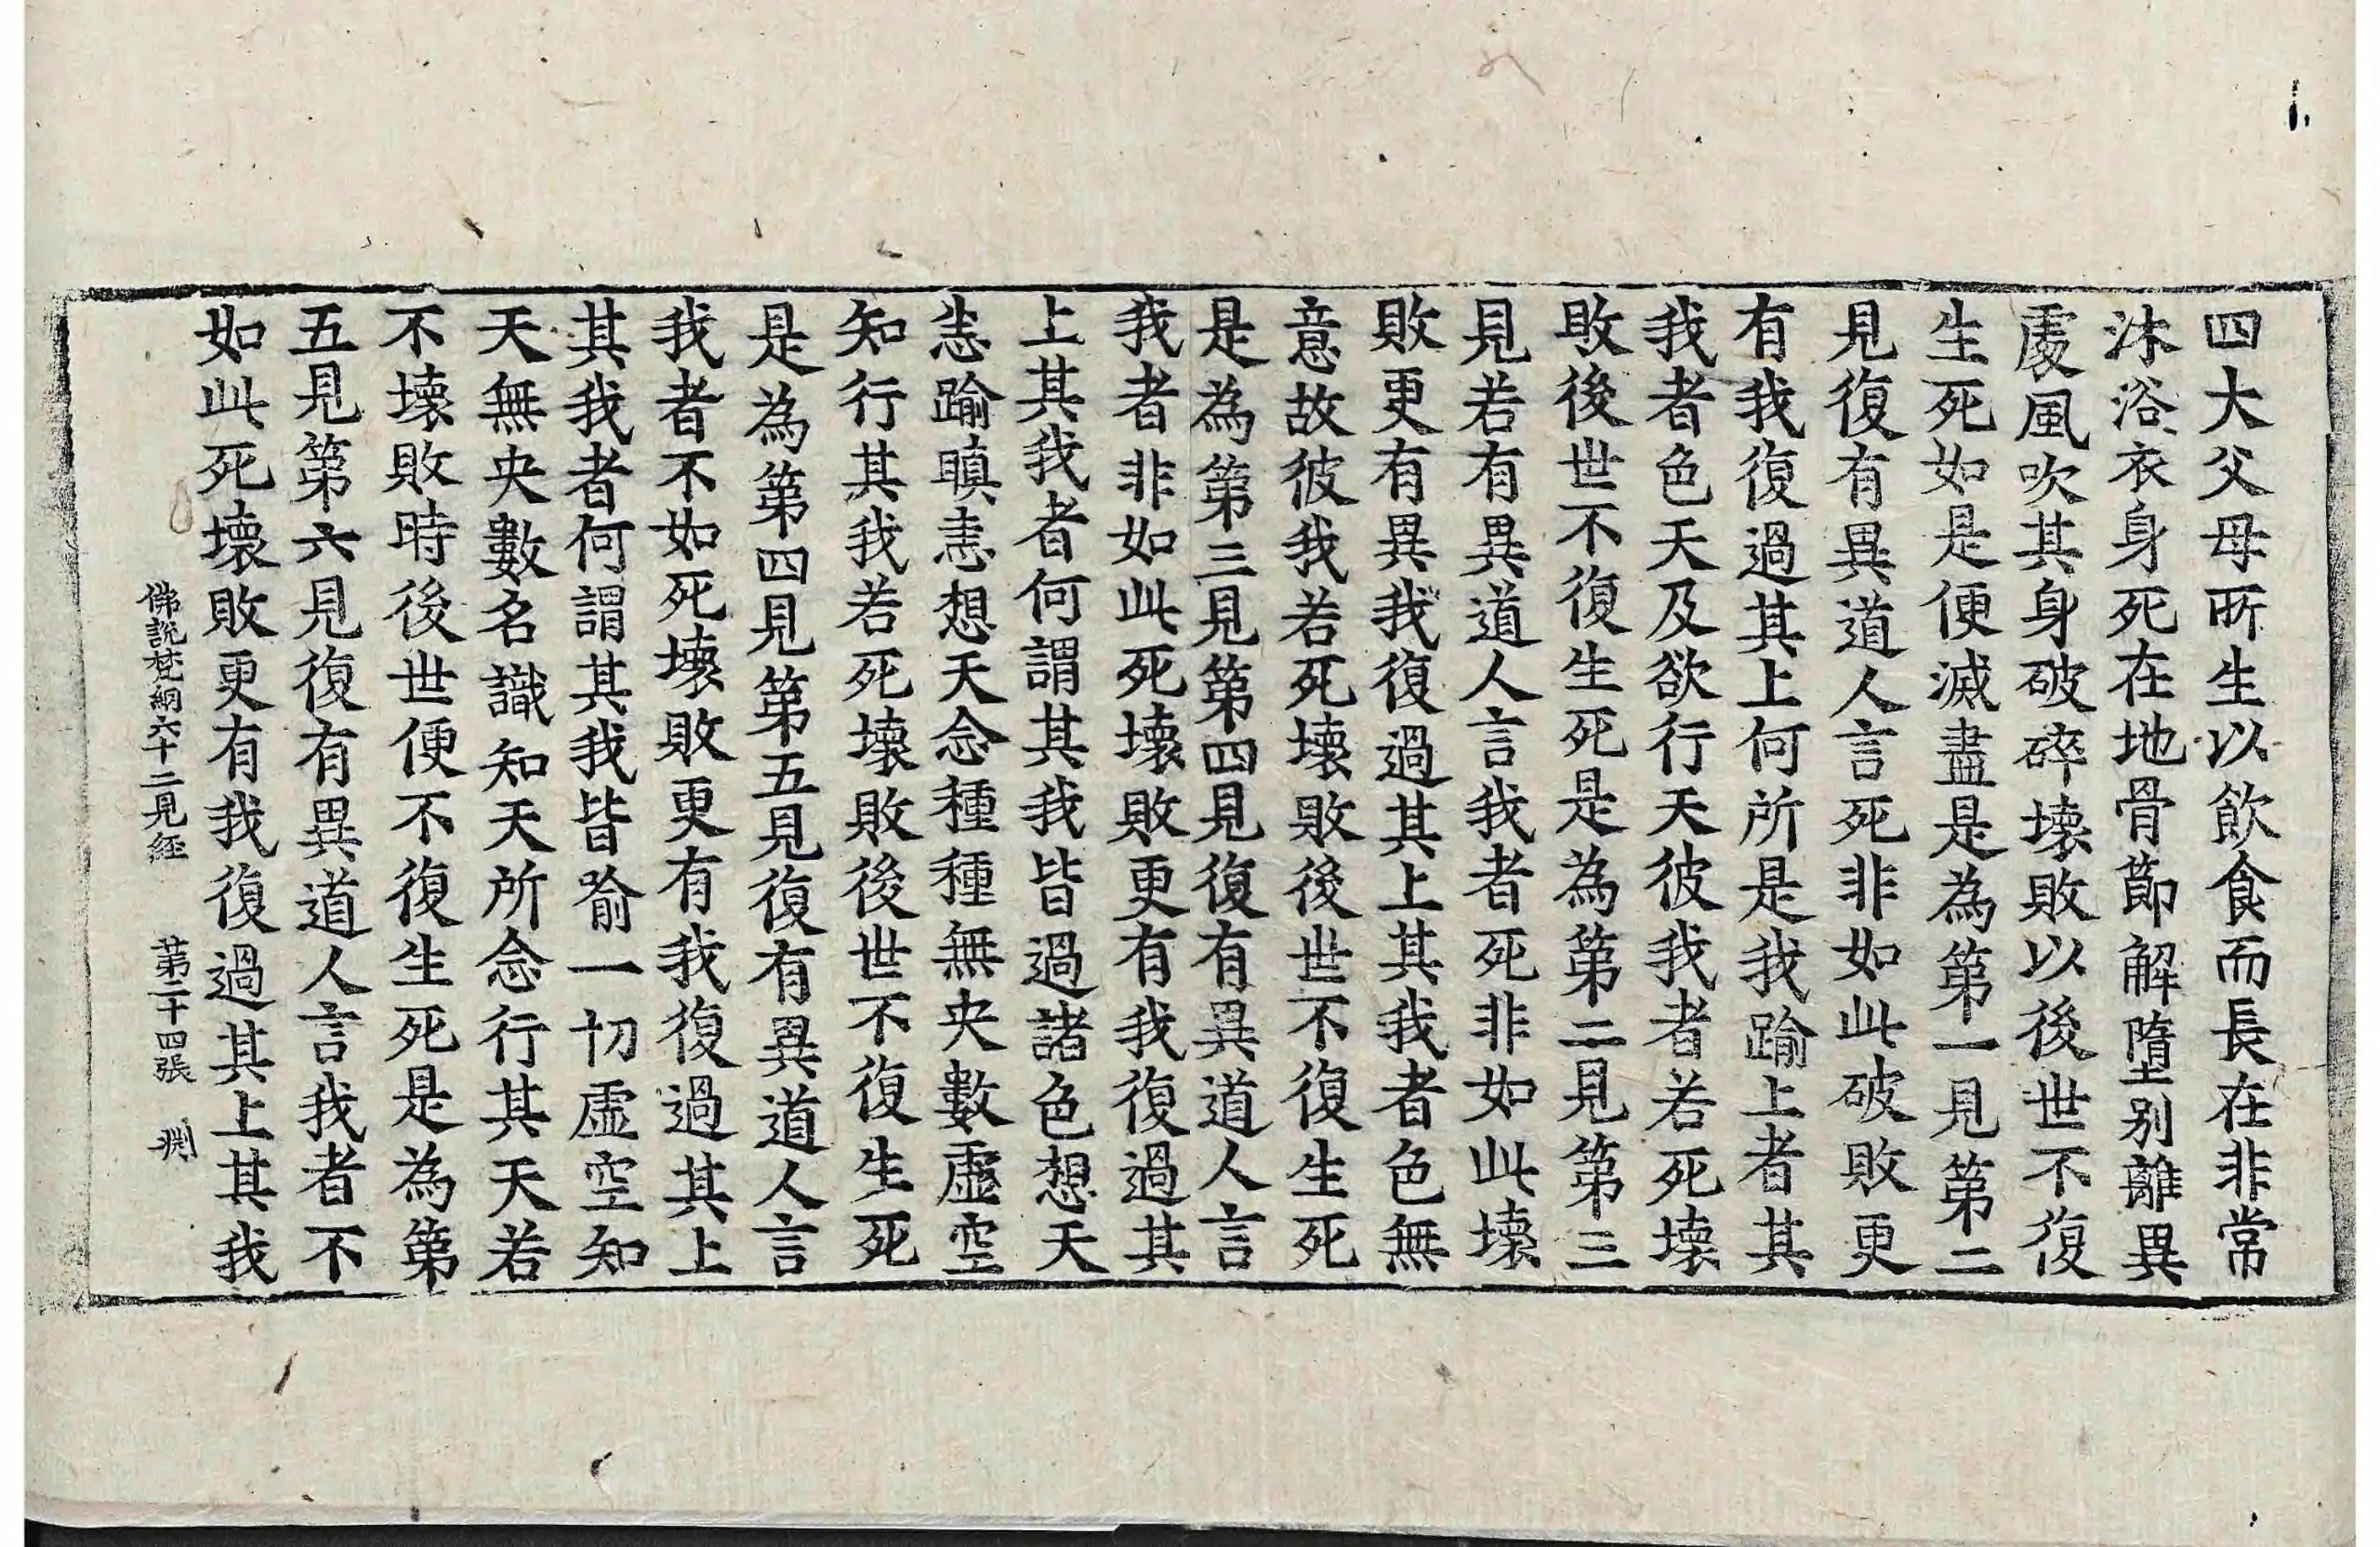 四大父母所生以飮食而長在非常
沐浴衣身死在地骨節解墮別離異
處風吹其身破碎壞敗以後世不復
生死如是便滅盡是為第一見第二
見復有異道人言死非如此破敗更
有我復過其上何所是我踰上者其
我者色天及欲行天彼我者若死壞
敗後世不復生死是為第二見第三
見若有異道人言我者死非如此壞
敗更有異我復過其上其我者色無
意故彼我若死壞敗後世不復生死
是為第三見第四見復有異道人言
我者非如此死壞敗更有我復過其
上其我者何謂其我皆過諸色想天
恚踰瞋恚想天念種種無央數虛空
知行其我若死壞敗後世不復生死
是為第四見第五見復有異道人言
我者不如死壞敗更有我復過其上
其我者何謂其我皆喻一切虛空知
天無央數名識知天所念行其天若
不壞敗時後世便不復生死是為第
五見第六見復有異道人言我者不
如此死壞敗更有我復過其上其我
佛說梵網六十二見經 第二十四張 渊